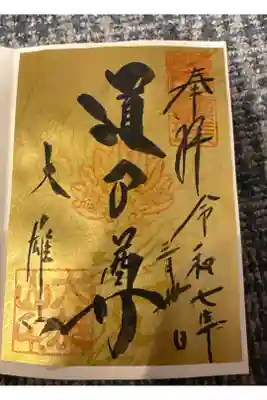 奉拝
令和七年
三月 日
道了尊
大雄山